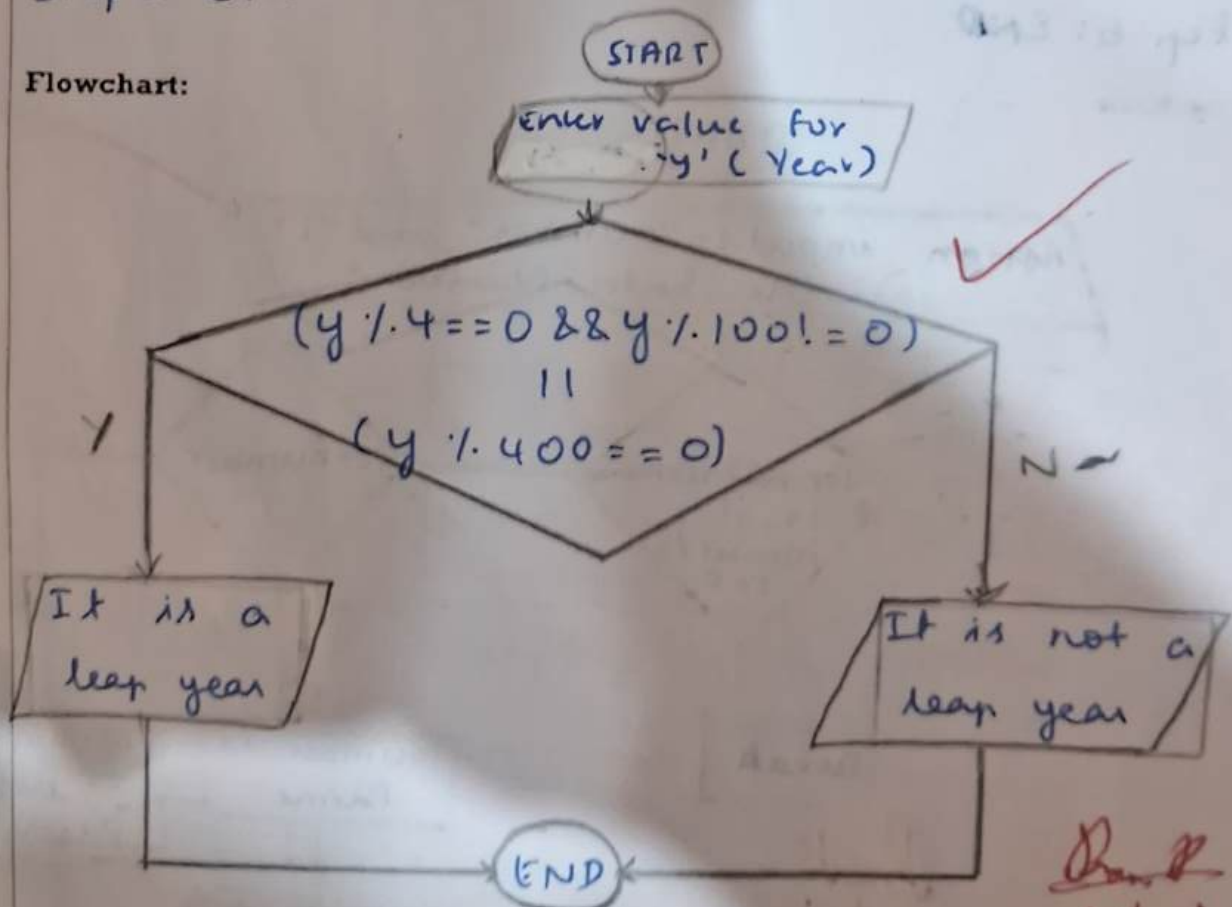 Flowchart:
START
Enter value for
'y' (Year)
(y % 4 == 0 && y % 100! = 0)
||
(y % 400 == 0)
Y
N
It is a
leap year
It is not a
leap year
END